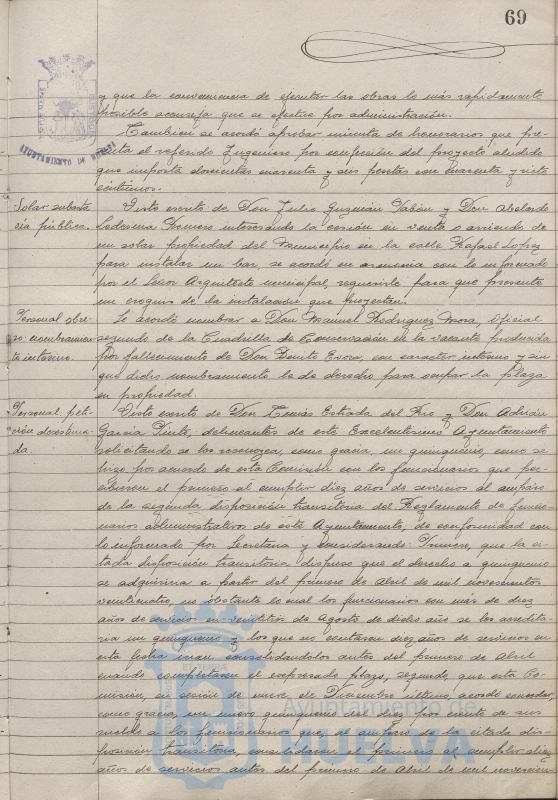 69
y que la conveniencia de ejecutar las obras lo más rapidamente
posible aconseja que se efectue por administración.
Tambien se acordó aprobar minuta de honorarios que pre-
senta el referido Ingeniero por confección del proyecto aludido
que importa doscientas cuarenta y seis pesetas con cuarenta y siete
centimos.
AYUNTAMIENTO DE HUELVA
Solar subasta
vía pública.
Visto escrito de Don Julio Guzmán Pabón y Don Abelardo
Ledesma Romero interesando la cesión en venta o arriendo de
un solar propiedad del Municipio en la calle Rafael Lopez
para instalar un bar, se acordó en armonia con lo informado
por el Señor Arquitecto municipal, requerirle para que presente
un croquis de la instalación que proyectan.
Personal obre-
ro: nombramien-
to interino.
Se acordó nombrar a Don Manuel Rodriguez Mora, Oficial
segundo de la Cuadrilla de Conservación en la vacante producida
por fallecimiento de Don Benito Evora, con caracter interino y sin
que dicho nombramiento le de derecho para ocupar la plaza
en propiedad.
Personal, peti-
ción desestima-
da.
Visto escrito de Don Tomás Estrada del Rio y Don Adrián
Garcia delineantes de este Excelentisimo Ayuntamiento
solicitando se les reconozca, como gracia, un quinquenio, como se
hizo por acuerdo de esta Comisión con los funcionarios que per-
cibieron el primero al cumplir diez años de servicios al amparo
de la segunda disposición transitoria del Reglamento de funcio-
narios administrativos de este Ayuntamiento, de conformidad con
lo informado por Secretaria y considerando: Primero, que la ci-
tada disposición transitoria dispuso que el derecho a quinquenio
se adquiriria a partir del primero de Abril de mil novecientos
veinticuatro, no obstante lo cual los funcionarios con más de diez
años de servicio en veintitres de Agosto de dicho año se les acredita-
ria un quinquenio y los que no contasen diez años de servicios en
esta fecha irian consolidandolos antes del primero de Abril
cuando completasen el expresado plazo, segundo, que esta Co-
misión, en sesión de de Diciembre último, acordó conceder,
como gracia, un nuevo quinquenio del diez por ciento de sus
sueldos a los funcionarios que, al amparo de la citada dis-
posición transitoria, consolidaron el primero al cumplir diez
años de servicios antes del primero de Abril de mil novecien-
Ayuntamiento de
HUELVA